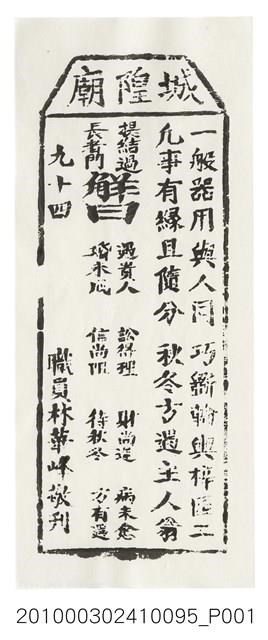 城隍廟
一般器用與人同 巧斵輪輿梓匠工
凡事有緣且隨分 秋冬方遇主人翁
提結過
長者門
解曰
遇貴人
婚未成
訟得理
信尚阻
財尚造
待秋冬
病未愈
方有選
九十四
職員林華峰敬刋
201000302410095_P001